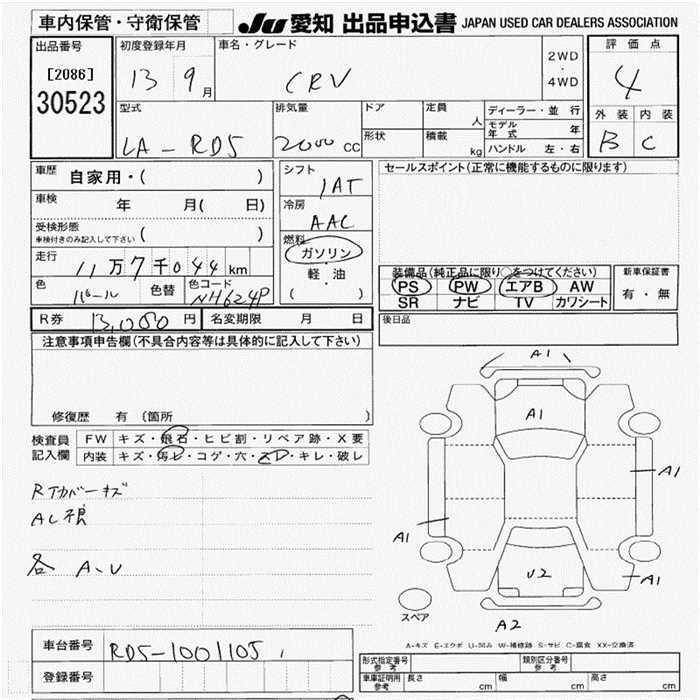 車内保管・守衛保管 JU 愛知 出品申込書 JAPAN USED CAR DEALERS ASSOCIATION
出品番号 初度登録年月 車名・グレード 評価点
[2086] 13 9月 CRV 2WD・4WD 4
30523
型式 排気量 ドア 定員 人 ディーラー・並行 外装 内装
LA-RD5 2000cc 形状 積載 kg モデル年式 年 B C
ハンドル 左・右
車歴 自家用・( ) シフト 1AT セールスポイント(正常に機能するものに限ります)
車検 年 月( 日) 冷房 AAC
受検形態 車検付きのみ記入して下さい ( )
燃料 ガソリン
走行 11万7千044km 軽・油 装備品(純正品に限り○をつけてください) 新車保証書
色 パール 色替 色コード NH624P ( ) PS PW エアB AW 有・無
SR ナビ TV カワシート
R券 13,080円 名変期限 月 日 後日品
注意事項申告欄(不具合内容等は具体的に記入して下さい)
修復歴 有 (箇所 )
検査員 FW キズ・飛石・ヒビ割・リペア跡・X要
記入欄 内装 キズ・汚レ・コゲ・穴・スレ・キレ・破レ
A1
A1
A1
A1
U2
A1
A2
スペア
RTカバーキズ
AC不良
各 A、U
A-キズ E-エクボ U-凹み W-補修跡 S-サビ C-腐食 XX-交換済
車台番号 RD5-1001105
登録番号
形式指定番号 参考 類別区分番号 参考
車庫証明用 参考 長さ cm 幅 cm 高さ cm